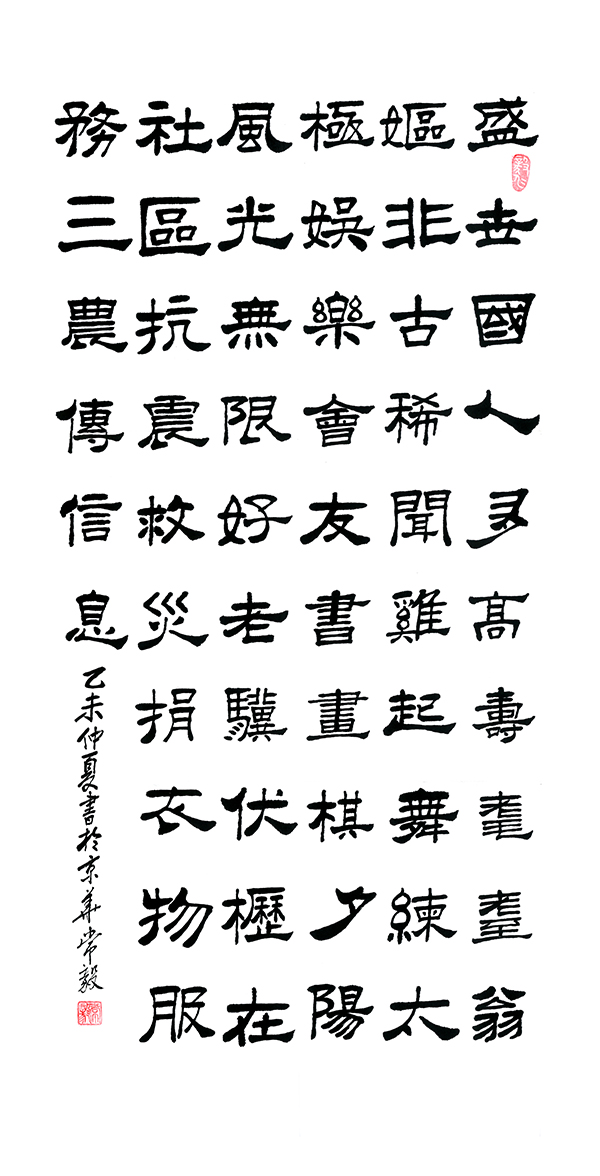 盛世國人多高壽耄耋翁
嫗非古稀聞雞起舞練太
極娛樂會友書畫棋夕陽
風光無限好老驥伏櫪在
社區抗震救災捐衣物服
務三農傳信息
乙未仲夏書於京華常毅